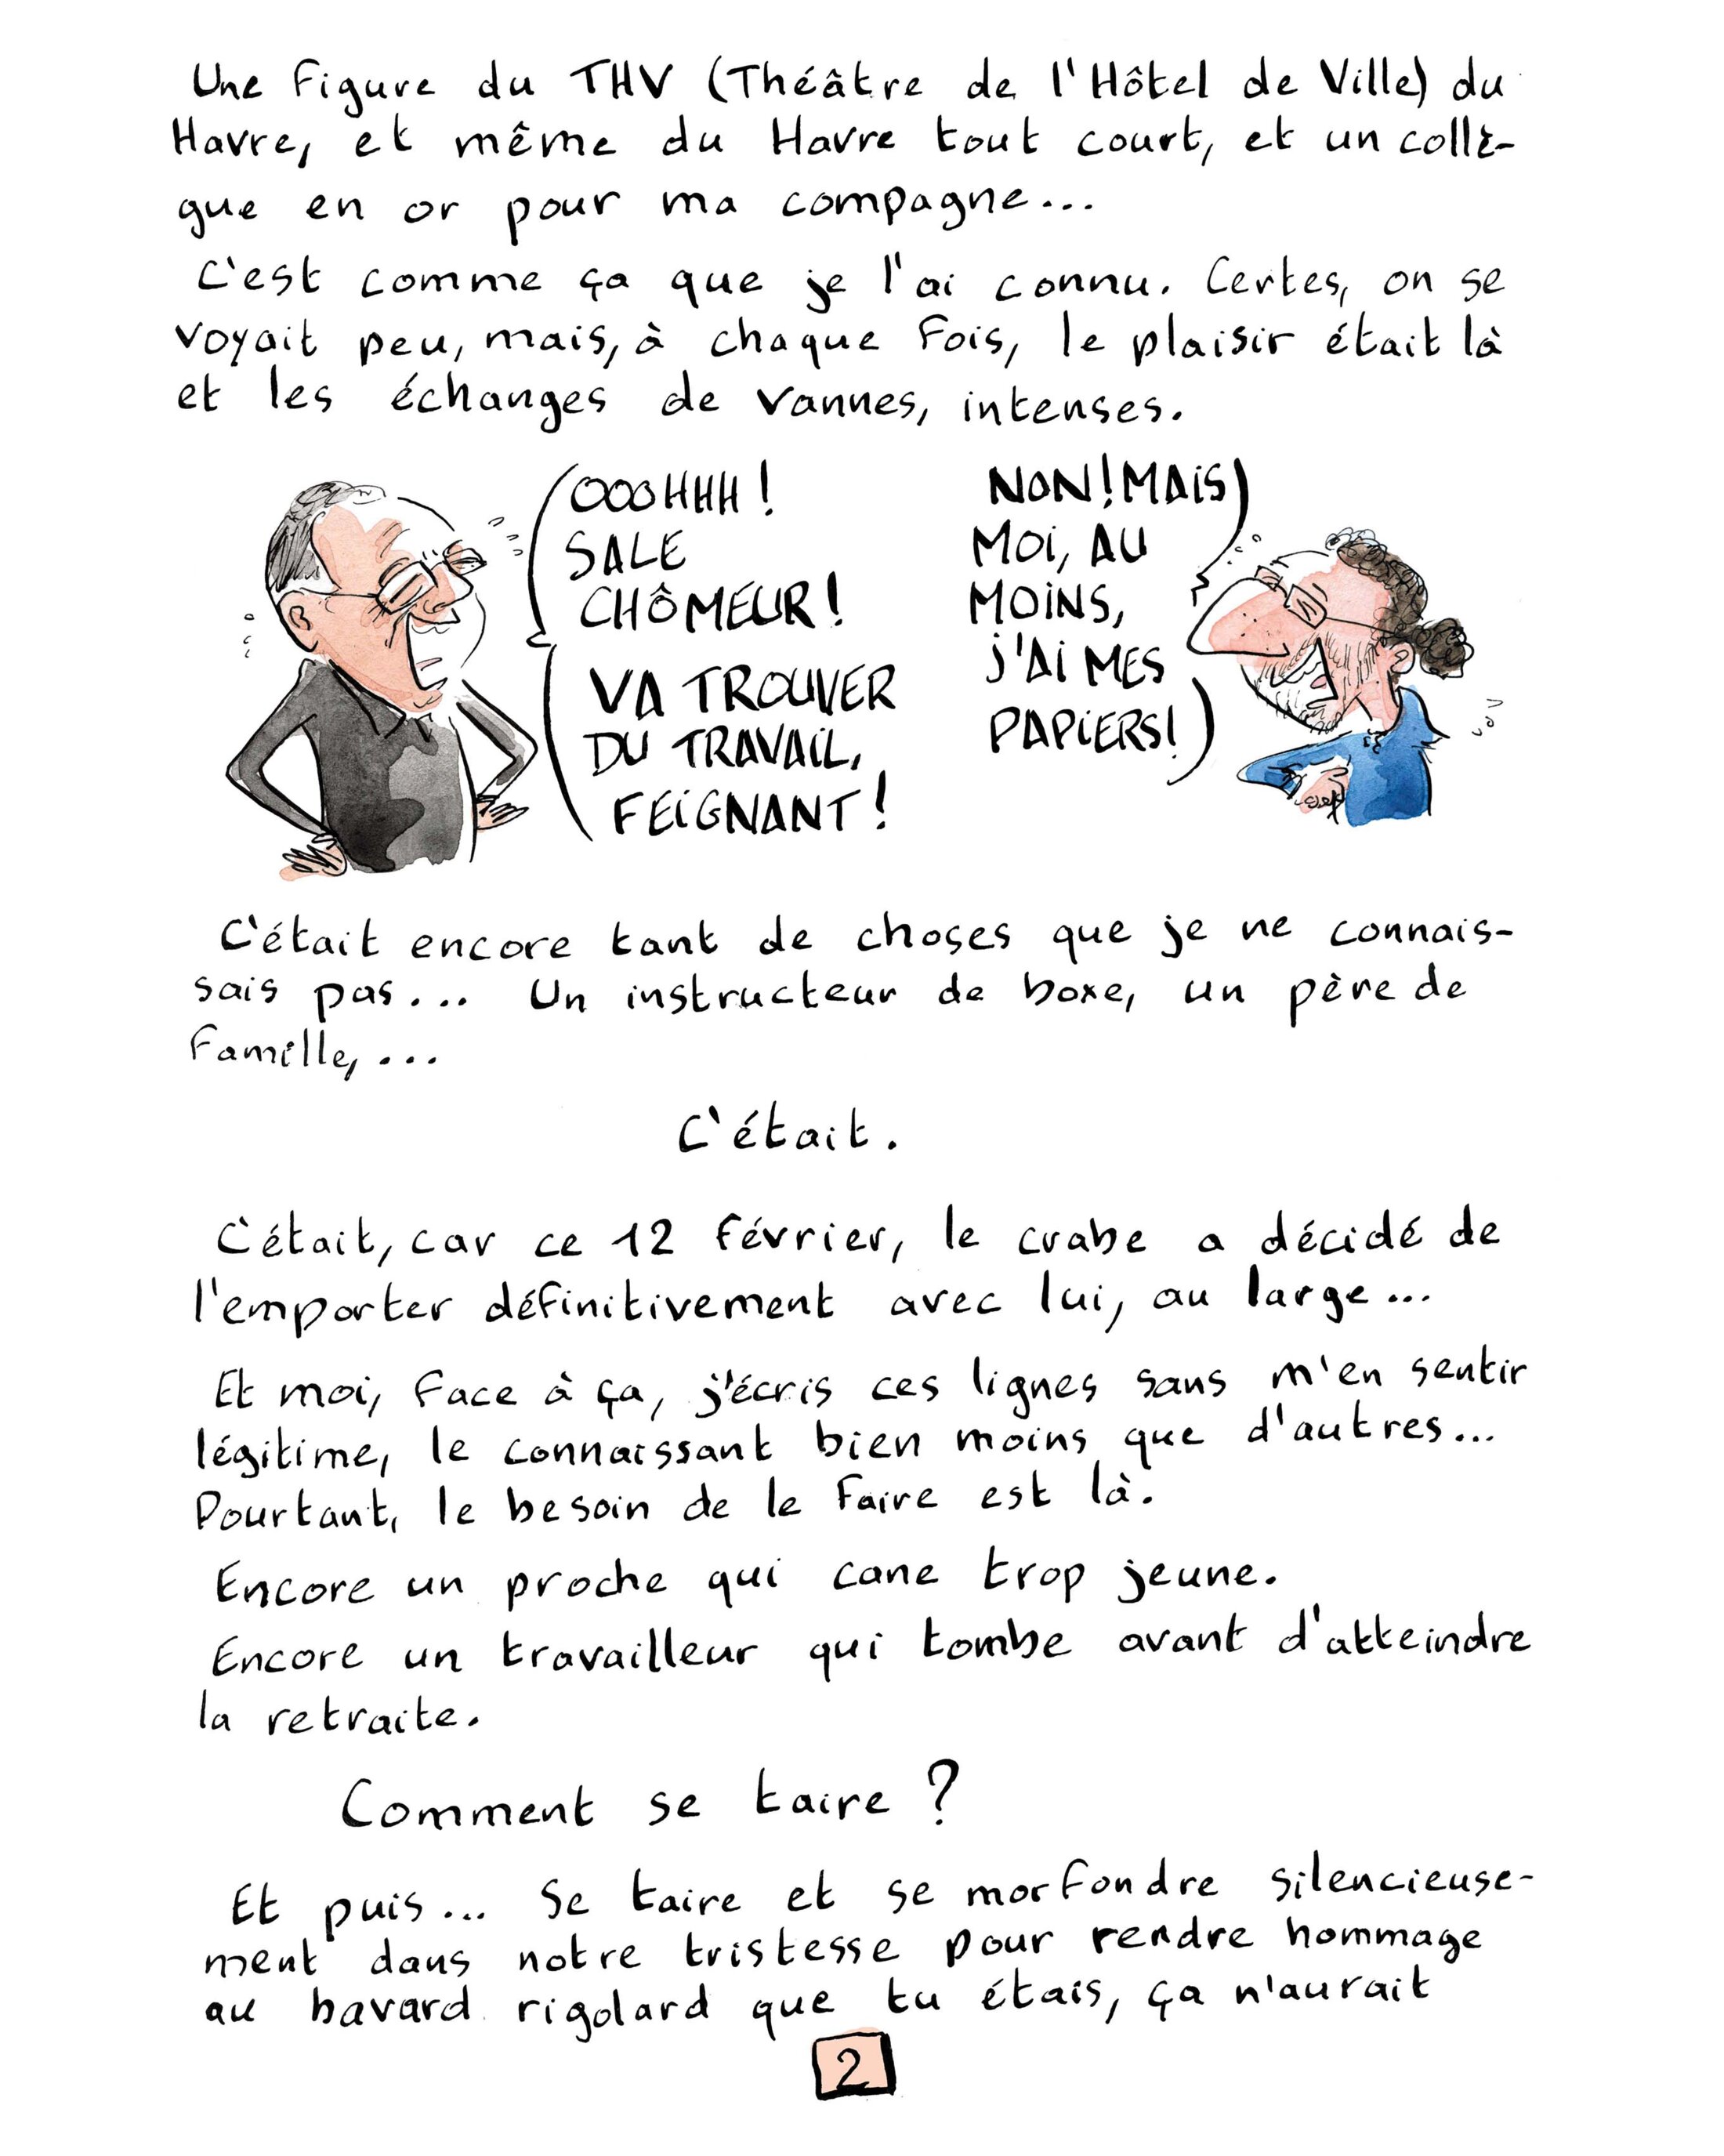 Une figure du THV (Théâtre de l'Hôtel de Ville) du
Havre, et même du Havre tout court, et un collè-
gue en or pour ma compagne...
C'est comme ça que je l'ai connu. Certes, on se
voyait peu, mais, à chaque fois, le plaisir était là
et les échanges de vannes, intenses.
OOOHHH !
SALE
CHÔMEUR !
VA TROUVER
DU TRAVAIL,
FEIGNANT !
NON ! MAIS
MOI, AU
MOINS,
J'AI MES
PAPIERS !
C'était encore tant de choses que je ne connais-
sais pas... Un instructeur de boxe, un père de
famille, ...
C'était.
C'était, car ce 12 février, le crabe a décidé de
l'emporter définitivement avec lui, au large...
Et moi, face à ça, j'écris ces lignes sans m'en sentir
légitime, le connaissant bien moins que d'autres...
Pourtant, le besoin de le faire est là.
Encore un proche qui cane trop jeune.
Encore un travailleur qui tombe avant d'atteindre
la retraite.
Comment se taire ?
Et puis... Se taire et se morfondre silencieuse-
ment dans notre tristesse pour rendre hommage
au bavard rigolard que tu étais, ça n'aurait
2